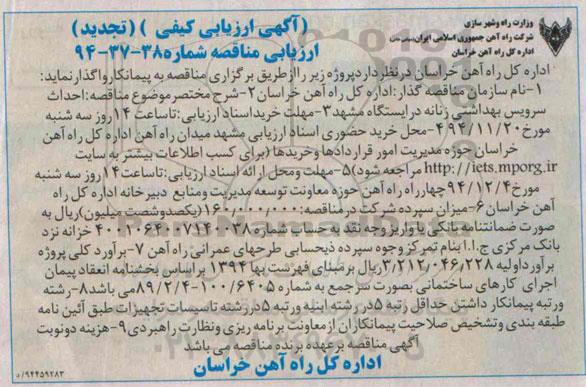 وزارت راه وشهر سازی
شرکت راه آهن جمهوری اسلامی ایران
اداره کل راه آهن خراسان
(آگهی ارزیابی کیفی ) (تجدید)
ارزیابی مناقصه شماره ۳۸-۳۷-۹۴
اداره کل راه آهن خراسان درنظر دارد پروژه زیر را ازطریق برگزاری مناقصه به پیمانکار واگذار نماید:
۱-نام سازمان مناقصه گذار: اداره کل راه آهن خراسان ۲-شرح مختصر موضوع مناقصه: احداث
سرویس بهداشتی زنانه درایستگاه مشهد ۳-مهلت خرید اسناد ارزیابی: تا ساعت ۱۴ روز سه شنبه
مورخ ۹۴/۱۱/۲۰ ۴-محل خرید حضوری اسناد ارزیابی مشهد میدان راه آهن اداره کل راه آهن
خراسان حوزه مدیریت امور قراردادها وخریدها (برای کسب اطلاعات بیشتر به سایت
http://iets.mporg.ir مراجعه شود) ۵-مهلت ومحل ارائه اسناد ارزیابی: تا ساعت ۱۴ روز سه شنبه
مورخ ۹۴/۱۲/۴ چهارراه راه آهن حوزه معاونت توسعه مدیریت ومنابع دبیرخانه اداره کل راه
آهن خراسان ۶-میزان سپرده شرکت در مناقصه: ۱۶۰/۰۰۰/۰۰۰ (یکصدوشصت میلیون) ریال به
صورت ضمانتنامه بانکی یا واریز وجه نقد به حساب شماره ۴۰۰۱۰۶۴۰۰۷۱۴۰۳۸ خزانه نزد
بانک مرکزی ج.ا.ا بنام تمرکز وجوه سپرده ذیحسابی طرحهای عمرانی راه آهن ۷-برآورد کلی پروژه
برآورد اولیه ۳/۲۱۲/۰۴۶/۲۲۸ ریال بر مبنای فهرست بها ۱۳۹۴ بر اساس بخشنامه انعقاد پیمان
اجرای کارهای ساختمانی بصورت سرجمع به شماره ۱۰۰/۶۴۰۵-۸۹/۲/۴ می باشد ۸-رشته
ورتبه پیمانکار داشتن حداقل رتبه ۵ در رشته ابنیه ورتبه ۵ در رشته تاسیسات تجهیزات طبق آئین نامه
طبقه بندی وتشخیص صلاحیت پیمانکاران از معاونت برنامه ریزی ونظارت راهبردی ۹-هزینه دونوبت
آگهی مناقصه برعهده برنده مناقصه می باشد
اداره کل راه آهن خراسان
۹۴۴۵۹۲۸۳/۵